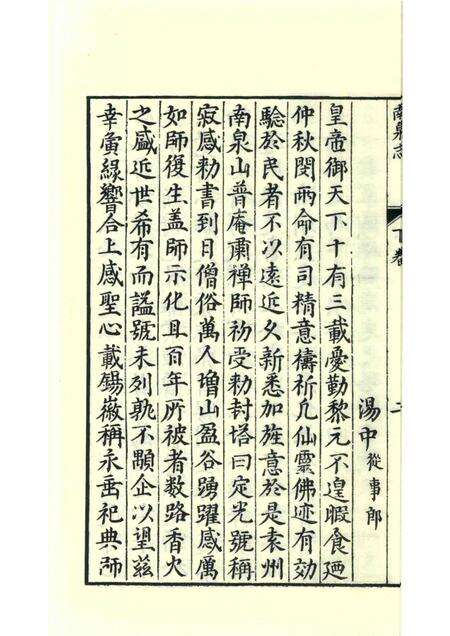 南泉志
下卷
二
湯中從事郎
皇帝御天下十有三載憂勤黎元不遑暇食廼
仲秋閔雨命有司精意禱祈凡仙靈佛迹有効
驗於民者不以遠近久新悉加旌意於是袁州
南泉山普庵肅禪師初受勑封塔曰定光號稱
寂感勑書到日僧俗萬人增山盈谷踴躍感厲
如師復生盖師示化且百年所被者数路香火
之盛近世希有而謚號未列孰不顒企以望茲
幸夤緣響合上感聖心載錫嶶稱永垂祀典師